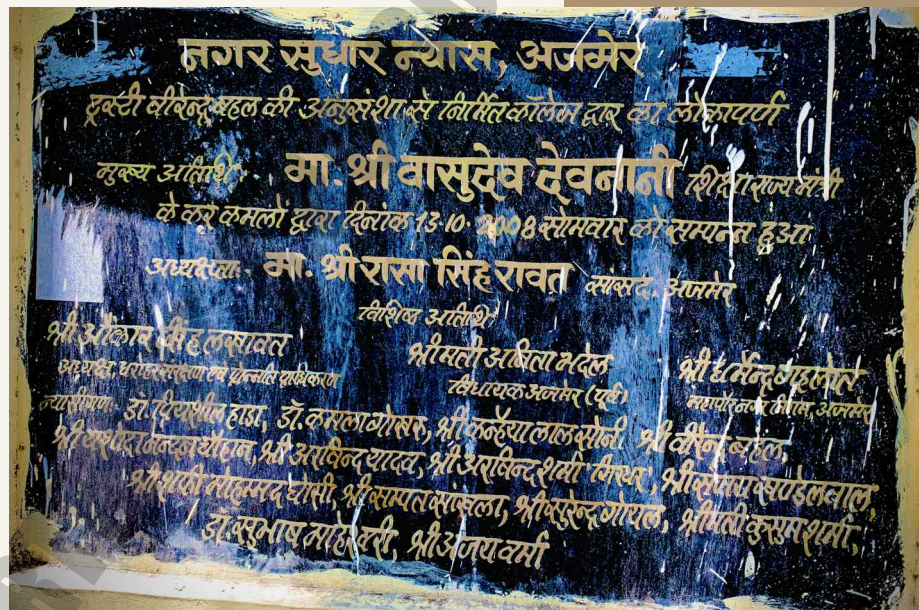 नगर सुधार न्यास, अजमेर
ट्रस्टी वीरेन्द्र बहल की अनुसंशा से निर्मित कॉलेज द्वार का लोकापर्ण
मुख्य अतिथि: मा. श्री वासुदेव देवनानी शिक्षा राज्य मंत्री
के कर कमलों द्वारा दिनांक 13-10-2008 सोमवार को सम्पन्न हुआ
अध्यक्षता: मा. श्री रासा सिंह रावत सांसद, अजमेर
विशिष्ठ अतिथि:
श्री औंकार सिंह लखावत श्रीमती अनिता भदेल श्री धर्मेन्द्र गहलोत
अध्यक्ष, धरोहर संरक्षण एवं प्रोन्नति प्राधिकरण विधायक अजमेर (पूर्व) महापौर नगर निगम, अजमेर
न्यासीगण: डॉ. प्रियशील हाडा, डॉ. कमला गोखरू, श्री कन्हैया लाल सोनी, श्री वीरेन्द्र बहल,
श्री यशोदानन्दन चौहान, श्री अरविन्द यादव, श्री अरविन्द शर्मा गिरधर, श्री संजय खण्डेलवाल,
श्री शफी मोहम्मद घोसी, श्री सम्पत सांखला, श्री सुरेन्द्र गोयल, श्रीमती कुसुम शर्मा,
डॉ. सुभाष माहेश्वरी, श्री अजय वर्मा